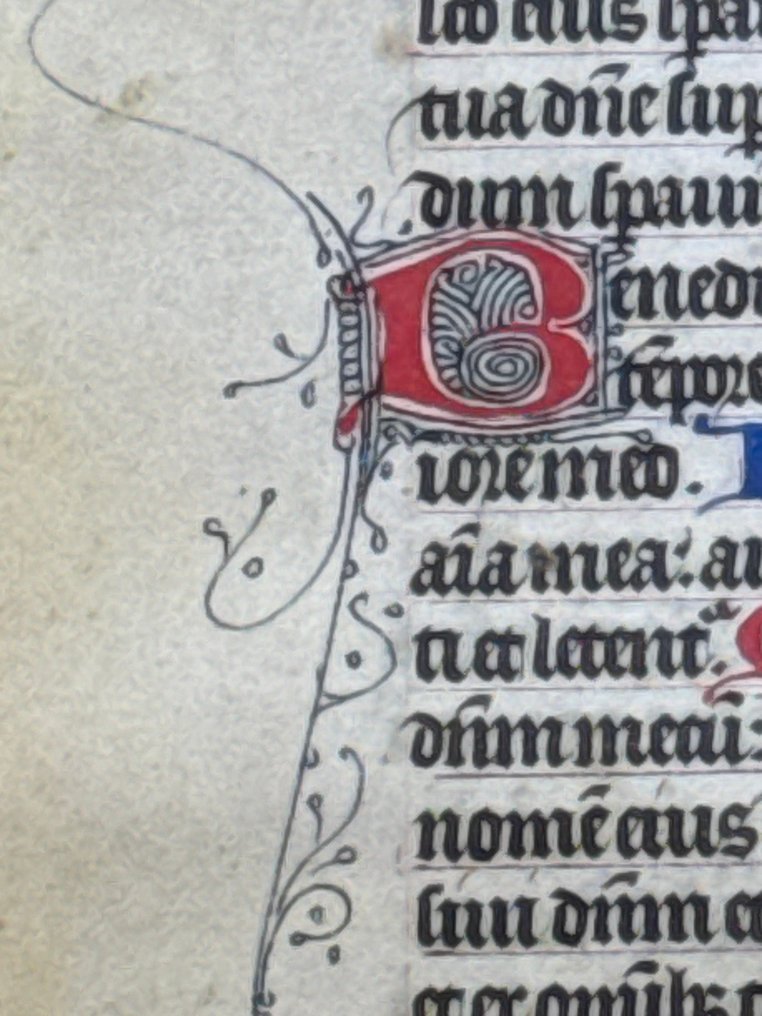 sco eius spa
tua dñe sup
dum spauim
Benedi
tēpore
i ore meo. I
aīa mea: au
ti et letent.
dñm mecū:
nomē eius
siui dñm et
et ex om̄ībꝫ